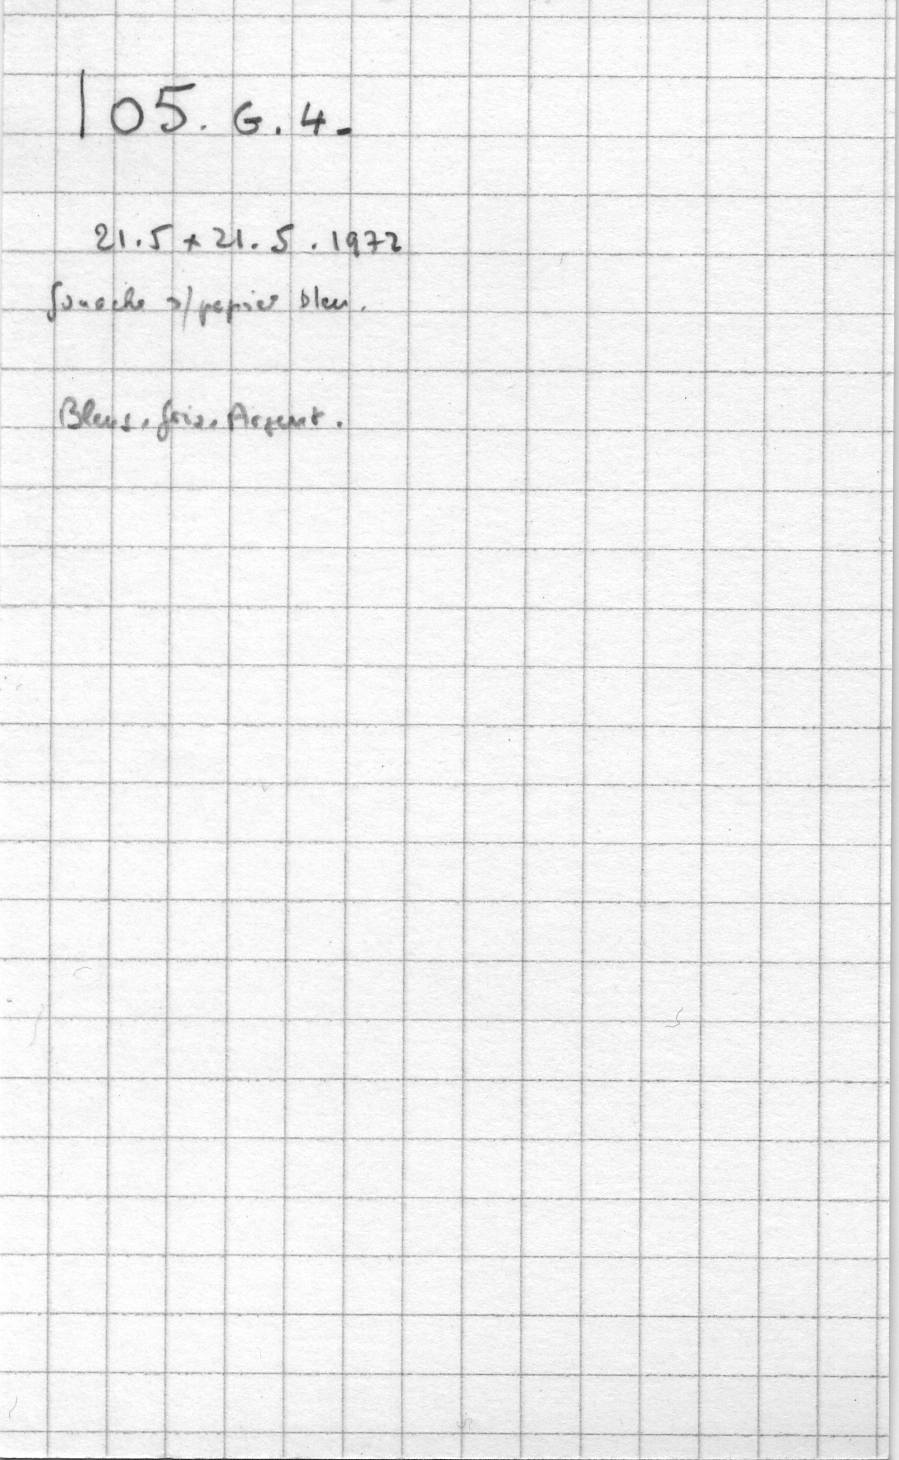 105. G. 4.
21.5 x 21.5 . 1972
Gouache s/papier bleu.
Bleus, Gris, Argent.